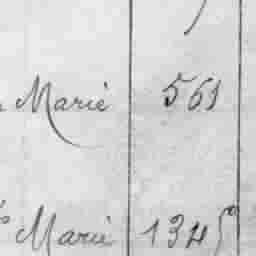 Marie 561
Marie 1345